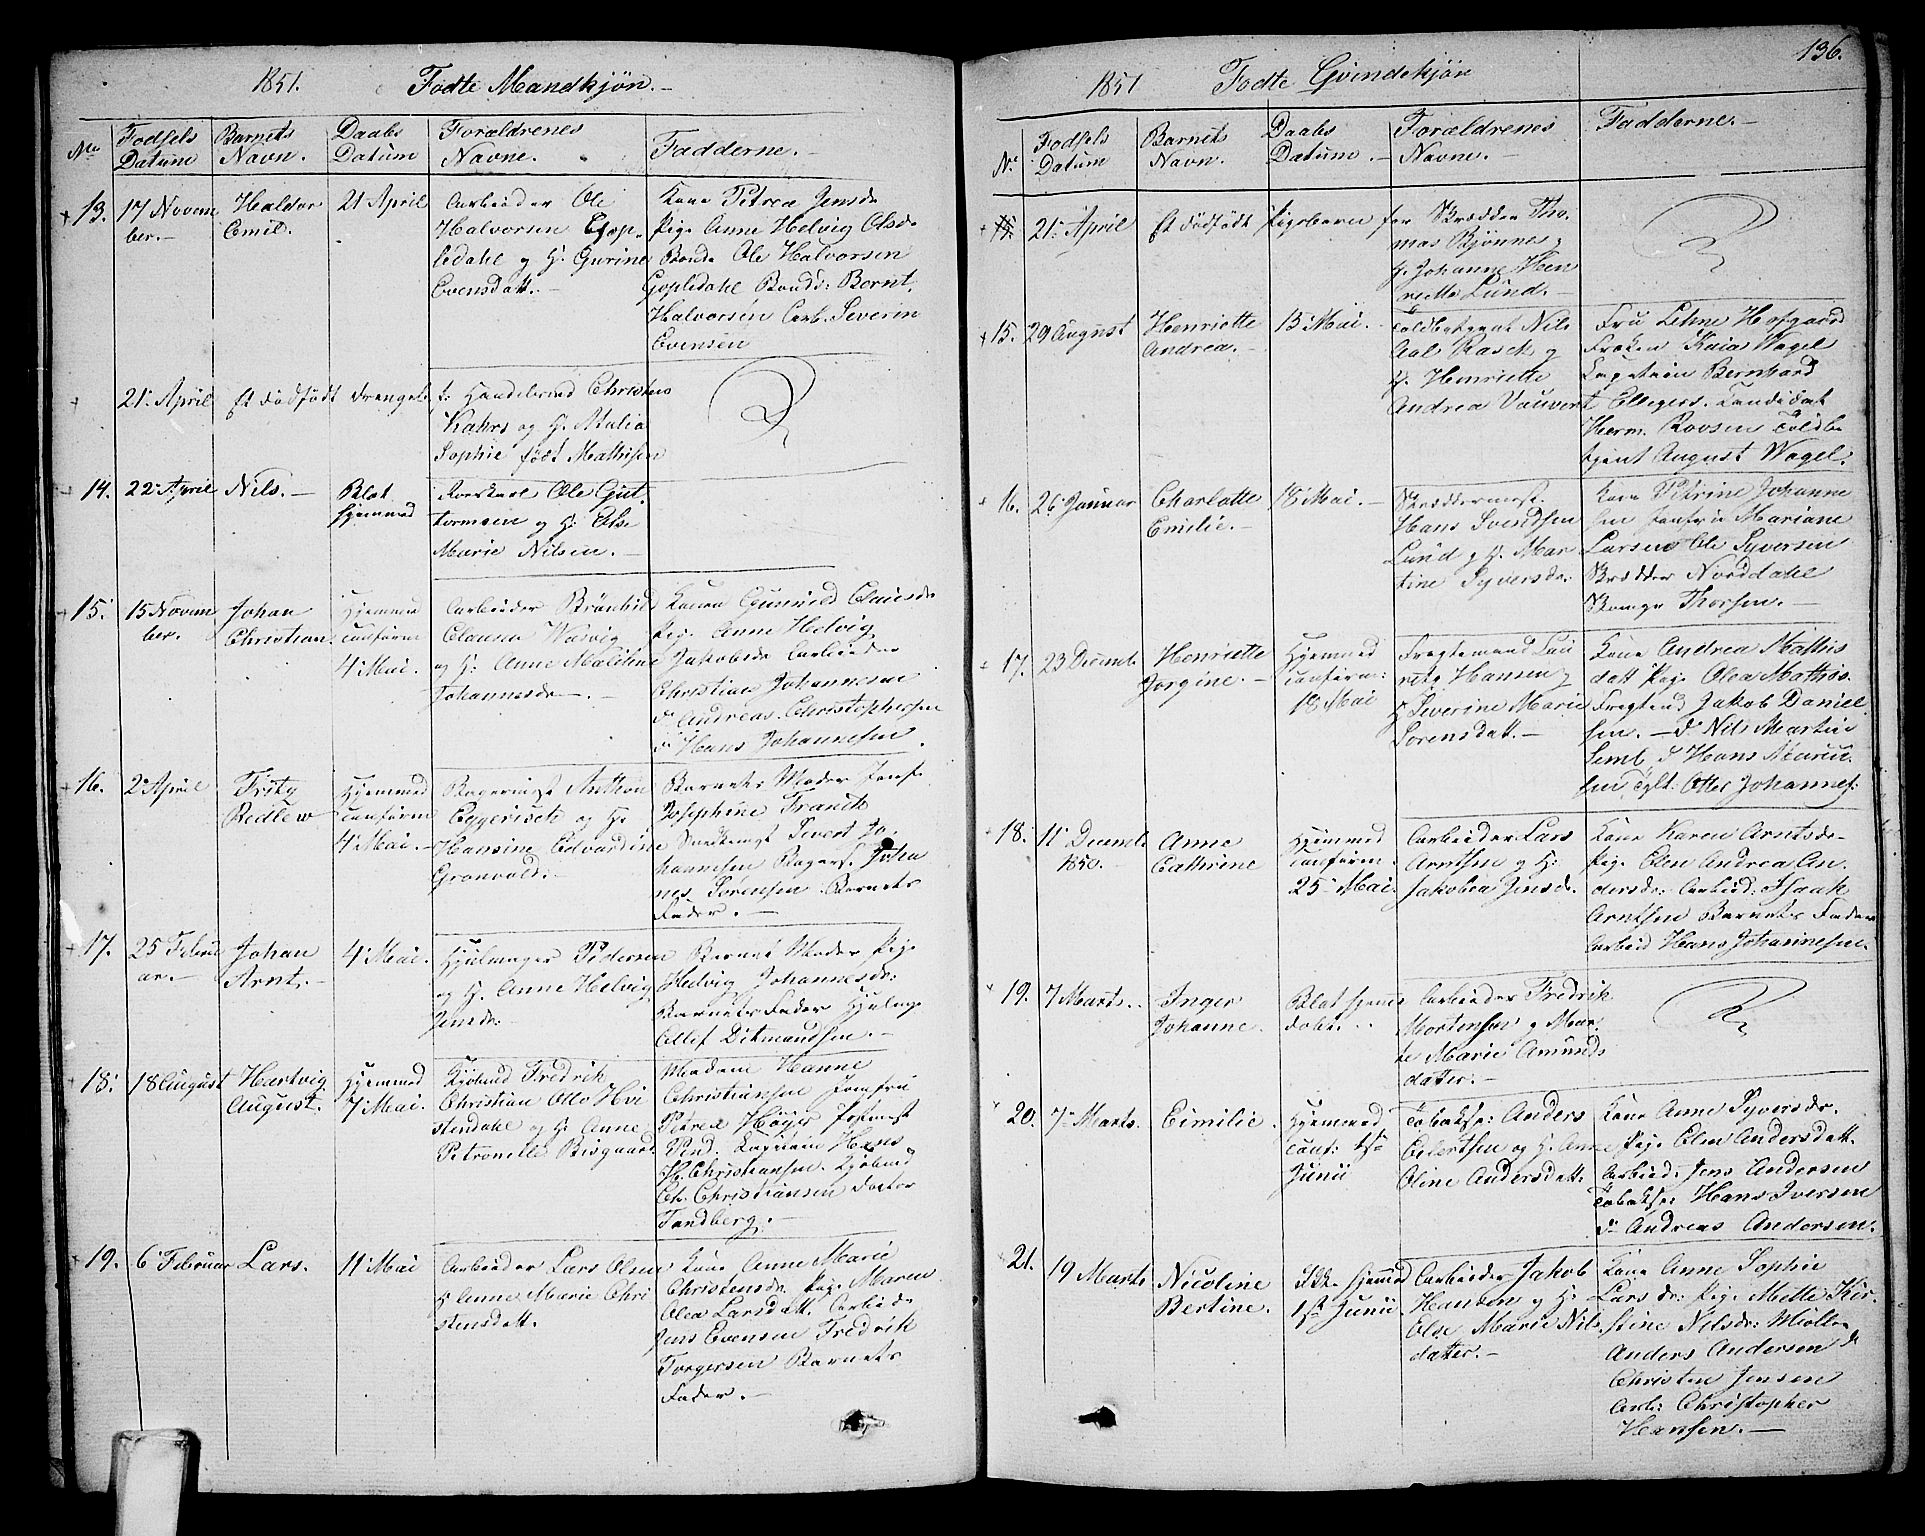 1851. Fødte Mandkjøn. —
No
Fødsels
Datum
Barnets
Navn.
Daabs
Datum
Forældrenes
Navne.
Fadderne. —
13.
17 Novem
ber. —
Haldor
Emil.
21 April
Arbeider Ole
Halvorsen Gop-
ledahl og H: Gurine
Evensdatt. —
Kone Petrea Jensd:
Pige Anne Helvig Olsd:
Bonde Ole Halvorsen
Gopledahl Bondes: Bernt
Halvorsen Arb. Severin
Evensen
21 April Et dødfødt Drengeb.
f. Handelsmd Christens
Kahrs og H. Malia
Sophie født Mathisen
14.
22 April
Nils. —
Blot
hjemmed
Ole Gut-
tormsen og H: Else
Marie Nilsen. —
15.
15 Novem
ber.
Johan
Christian.
Hjemmed
confirm
4 Mai.
Arbeider
Clausen Walvig
og H: Anne Malilene
Johannesd. —
Konen Gunnild Clausd:
Pige Anne Helvig
Jakobsd: Arbeider
Christian Johannesen
do Andreas Christophersen
do Hans Johannesen
16.
2 April
Fritz
Redlew
Hjemmed
confirm
4 Mai. —
Bagermest Anthon
Eggerisch og H:
Hansine Edvardine
Gronvold. —
Barnets Moder Jomf.
Josephine Franck
Sivert Jo-
hannesen Bagers. Joha
nes Sørensen Barnets
Fader. —
17.
25 Febru
ar. —
Johan
Arnt. —
4 Mai.
Hjulmager Pedersen
og H. Anne Helvig
Jensd:
Barnets Moder Pige
Helvig Johannesd:
Barnets Fader Hjulmag
Ollef Ditmandsen. —
18.
18 August
Hartvig
August.
Hjemmed
7 Mai.
Kjøbmd Fredrik
Christian Otto Hvi
stendahl og H: Anne
Petronelle Bisgaard
Madam Hanne
Christiansen Jomfru
Petrea Høyer Postmest
Pind. Capitain Hans
H. Christiansen. Kjøbmd
Ch. Christiansen Doctor
Tandberg. —
19.
6 Februar
Lars.
11 Mai
Arbeider Lars Olsen
H Anne Marie Chri
stensdatt.
Kone Anne Marie
Christensd: Pige Maren
Olea Larsdatt. Arbeid:
Jens Evensen Fredrik
Torgersen Barnets
Fader. —
136.
1851 Fødte Qvindekjøn
No
Fødsels
Datum
Barnets
Navn.
Daabs
Datum. —
Forældrenes
Navne. —
Fadderne. —
21 April Et dødfødt Pigebarn for Skrædder Tho-
mas Bjønnes,
H. Johanne Hen
riette Lund. —
15.
29 August
Henriette
Andrea. —
13 Mai. —
Toldbetjent Nils
Aal Rasch og
H. Henriette
Andrea Vauvert
Fru Lehne Hofgaard
Frøken Kaia Wagel
Capitain Bernhard
Ellegers. Candidat
Herm. Rovsen Toldbe
tjent August Wagel.
16.
26 Januar
Charlotte
Emilie. —
18 Mai. —
Skræddermest.
Hans Svendsen
Lund og H. Mar
tine Syversd:
Kone Petrine Johanne
sen Jomfru Mariane
Larsen Ole Syversen
Skrædder Norddahl
Thorsen. —
17.
23 Decemb.
Henriette
Jorgine. —
Hjemmed
confirm:
18 Mai
Fragtemand Lau
ritz Hansen og
H Severine Marie
Sorensdatt. —
Kone Andrea Mathis
datt Pige Olea Mathis.
Fragtmd Jakob Daniel
sen. — do Nils Martin
Seml, do Hans
sen Otter Johannes.
18.
11 Decemb.
1850.
Anne
Cathrine
Hjemmed
confirm.
25 Mai.
Arbeider Lars
Arntsen og H:
Jakobea Jensd.
Kone Karen Arntsd:
Pige Elen Andrea An-
dersd: Arbeid: Isaak
Arntsen Barnets Fader
Arbeid Hans Johannesen.
19.
7 Marts.
Inger
Johanne.
Blot hjemme
døbt. —
Arbeider Fredrik
Mortensen og Mar-
te Marie Amunds
dater. —
20.
7 Marts.
Eimilie.
Hjemmed
conf: 1ste
Junii
Tobaksp: Anders
Eilertsen og H. Anne
Oline Andersdatt.
Kone Anne Syversd:
Pige Elen Andersdatt.
Arbeid: Jens Andersen
Tobaksp: Hans Iversen
do Andreas Andersen.
21.
19 Marts
Nicoline
Bertine.
Ikke hjemmed
1ste Junii
Arbeider Jakob
Hansen og H:
Else Marie Nils
datter. —
Kone Anne Sophie
Larsd: Pige Mette Kir-
stine Nilsd: Møller
Anders Andersen do
Christen Jensen
Arb: Christopher
Hansen. —